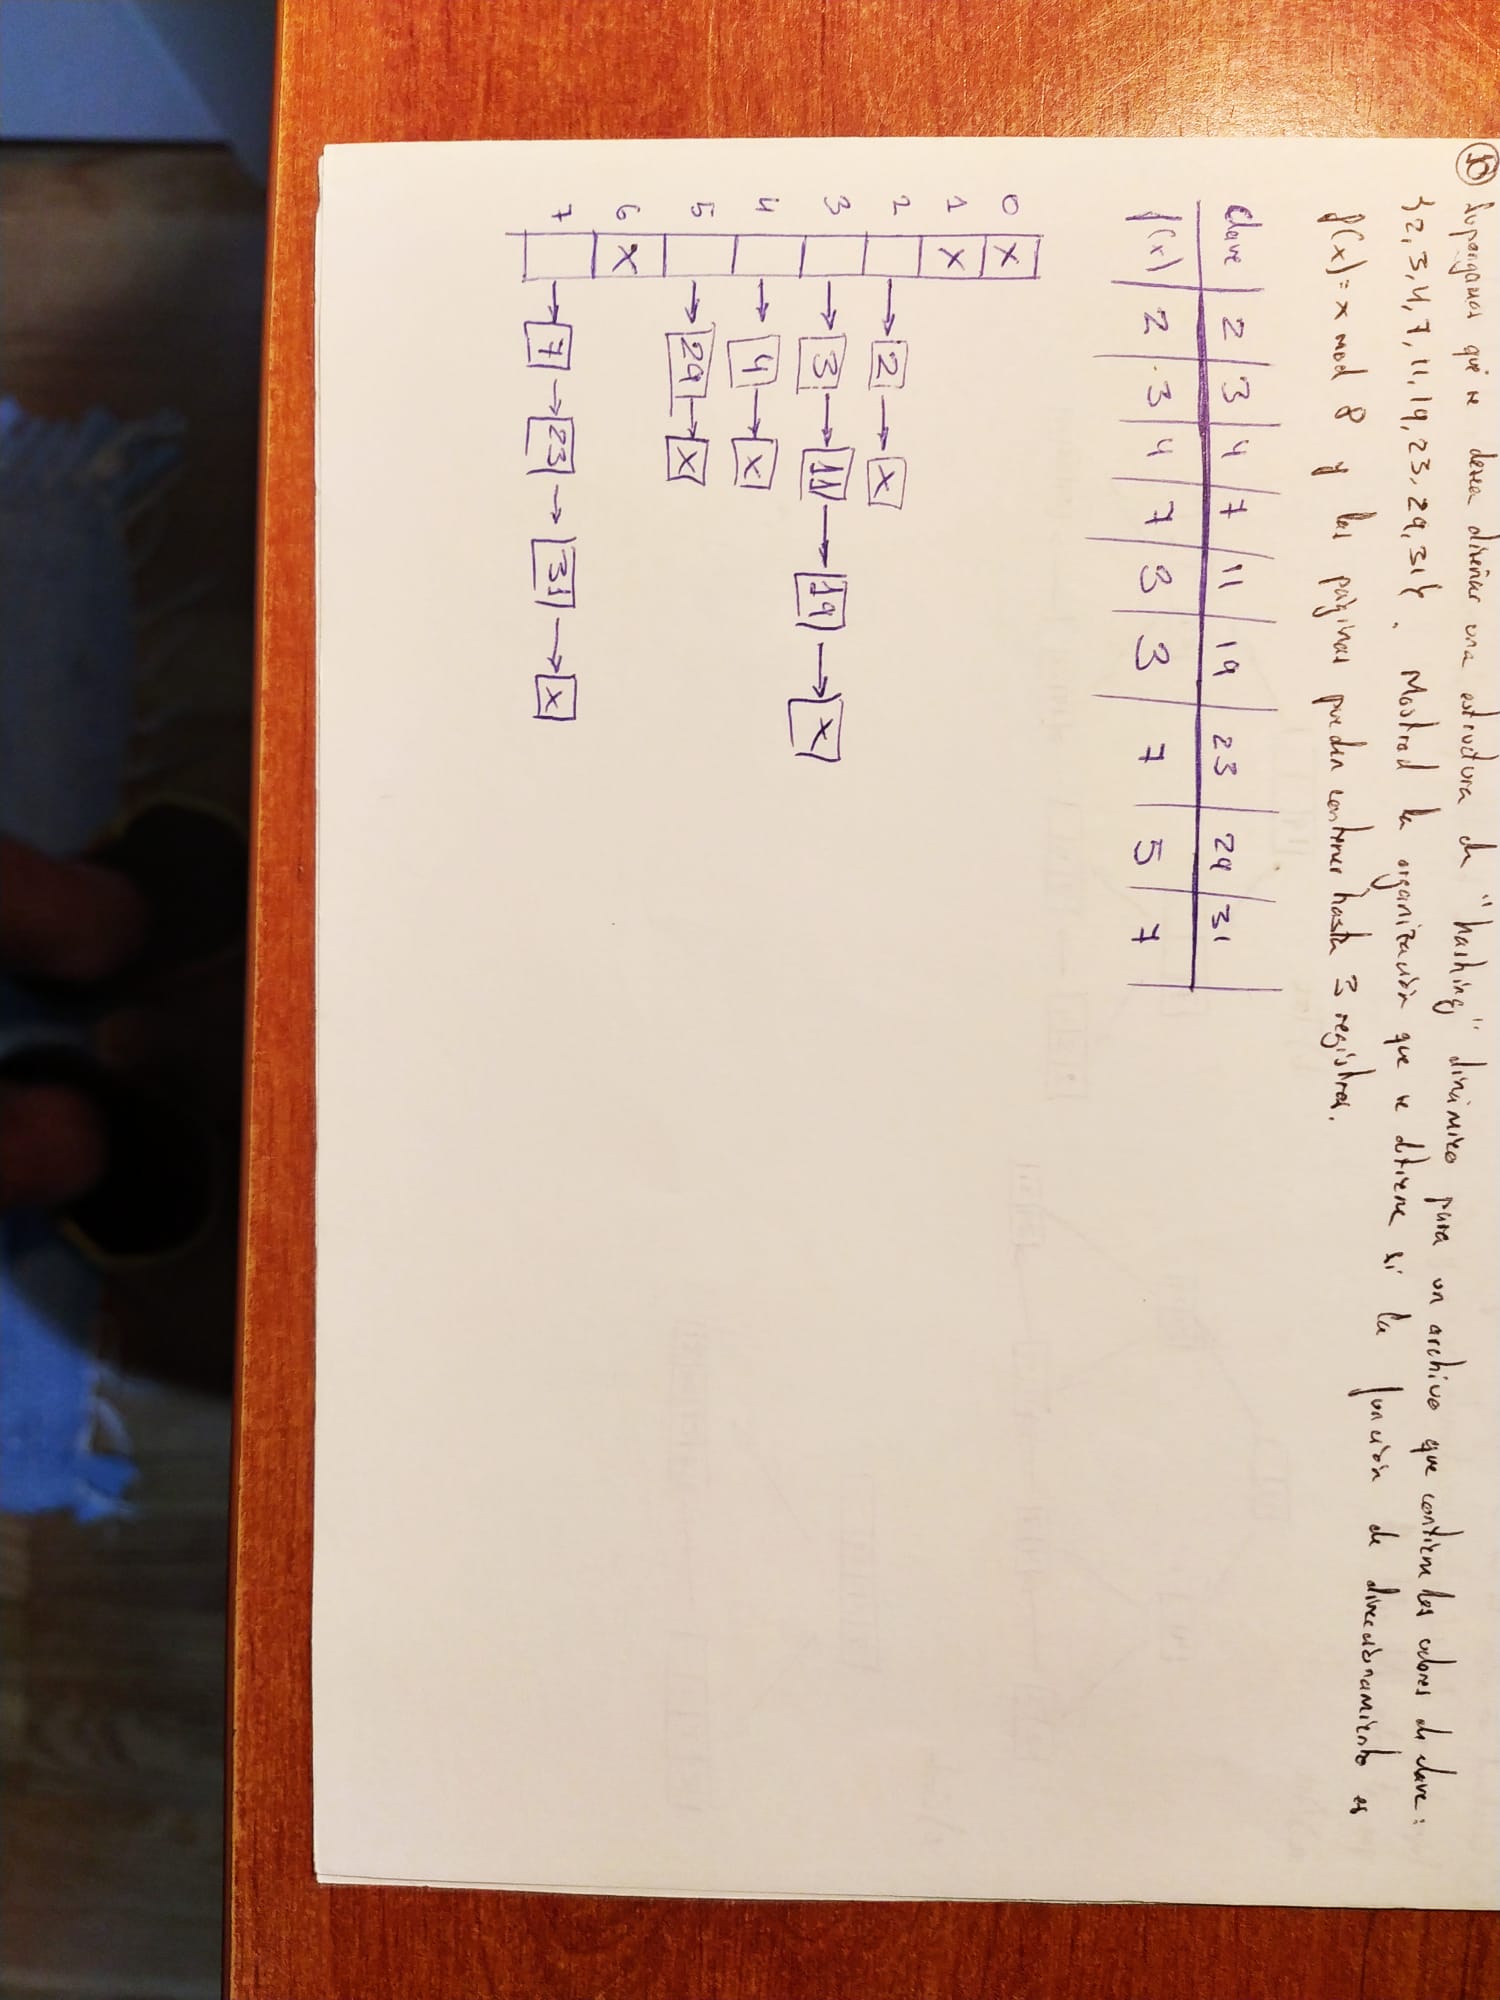 10 Supongamos que se desea diseñar una estructura de "hashing" dinámico para un archivo que contiene los valores de clave:
{2,3,4,7,11,19,23,29,31}. Mostrad la organización que se obtiene si la función de direccionamiento es
f(x)=x mod 8 y las páginas pueden contener hasta 3 registros.
Clave 2 3 4 7 11 19 23 29 31
f(x) 2 3 4 7 3 3 7 5 7
0 X
1 X
2 → 2 → X
3 → 3 → 11 → 19 → X
4 → 4 → X
5 → 29 → X
6 X
7 → 7 → 23 → 31 → X